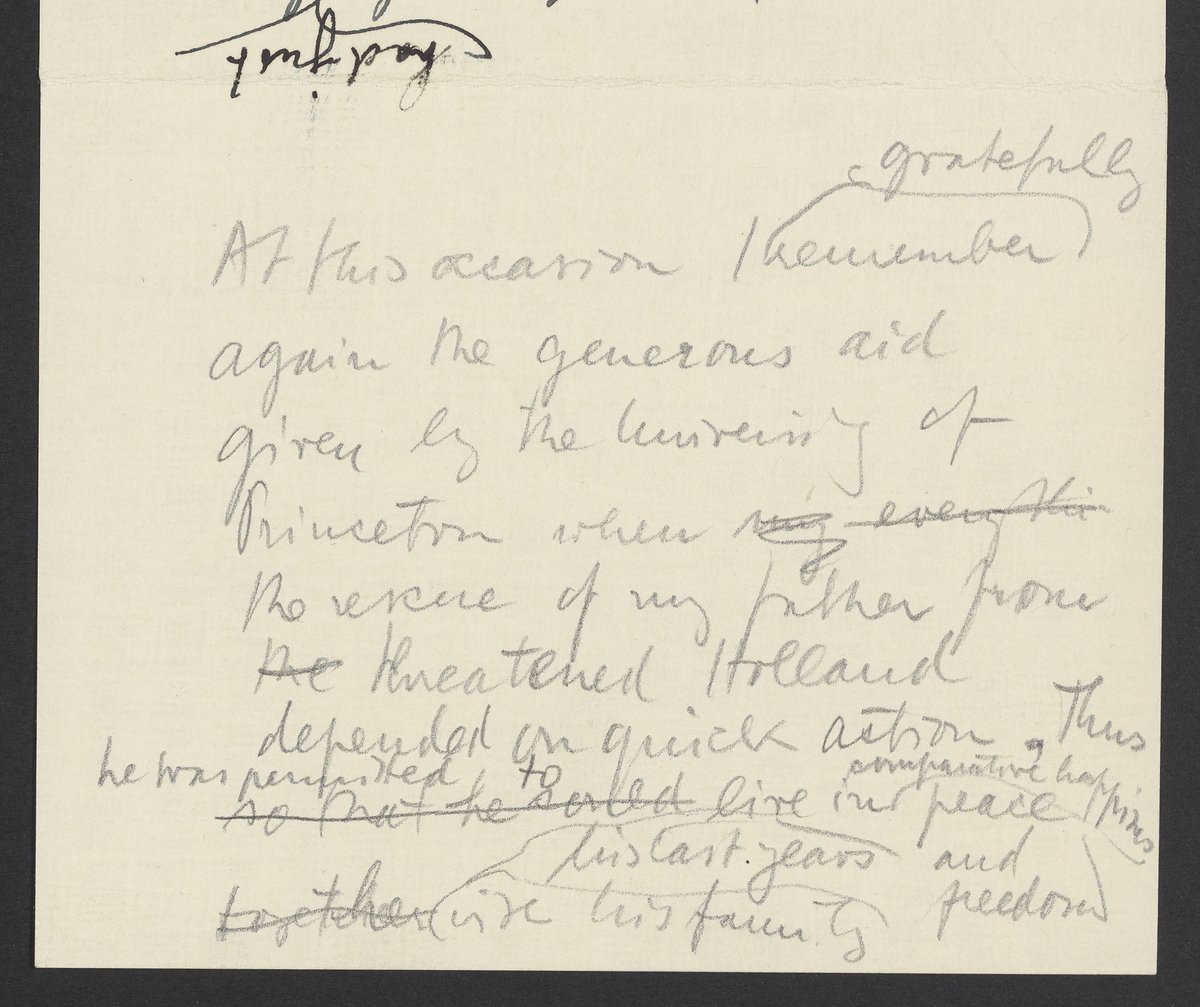 had just
gratefully
At this occasion I remember
again the generous aid
given by the University of
Princeton when my everythin
the rescue of my father from
the threatened Holland
depended on quick action, Thus
he was permitted to comparative happiness
so that he could live in peace
his last years and
together with his family freedom